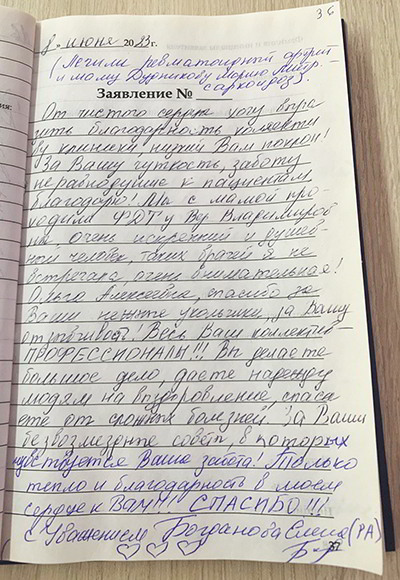 36
8 " июня 2023г.
(Лечили ревматоидный артрит
и маму Дудникову Марию Митр. -
саркоидоз).
Заявление №
От чистого сердца хочу выра
зить благодарность коллекти
ву клиники низкий Вам поклон!
За Вашу чуткость, заботу
неравнодушие к пациентам
благодарю! Мы с мамой про-
ходили ФДТ у Владимиров
ны очень искренний и душев-
ной человек, таких врачей я не
встречала, очень внимательная!
Ольга Алексеевна, спасибо за
Ваши нежные укольчики, за Вашу
отзывчивость! Весь Ваш коллектив -
ПРОФЕССИОНАЛЫ!!! Вы делаете
большое дело, даете надежду
людям на выздоровление, спаса
ете от сложных болезней. За Ваши
безвозмездные советы, в которых
чувствуется Ваша забота! Только
тепло и благодарность в моем
сердце к Вам!!! СПАСИБО!!!
С Уважением Богданова Елена (РА)